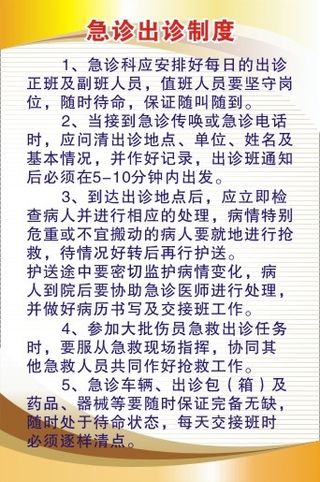 急诊出诊制度
1、急诊科应安排好每日的出诊
正班及副班人员，值班人员要坚守岗
位，随时待命，保证随叫随到。
2、当接到急诊传唤或急诊电话
时，应问清出诊地点、单位、姓名及
基本情况，并作好记录，出诊班通知
后必须在5-10分钟内出发。
3、到达出诊地点后，应立即检
查病人并进行相应的处理，病情特别
危重或不宜搬动的病人要就地进行抢
救，待情况好转后再行护送。
护送途中要密切监护病情变化，病
人到院后要协助急诊医师进行处理，
并做好病历书写及交接班工作。
4、参加大批伤员急救出诊任务
时，要服从急救现场指挥，协同其
他急救人员共同作好抢救工作。
5、急诊车辆、出诊包（箱）及
药品、器械等要随时保证完备无缺，
随时处于待命状态，每天交接班时
必须逐样清点。